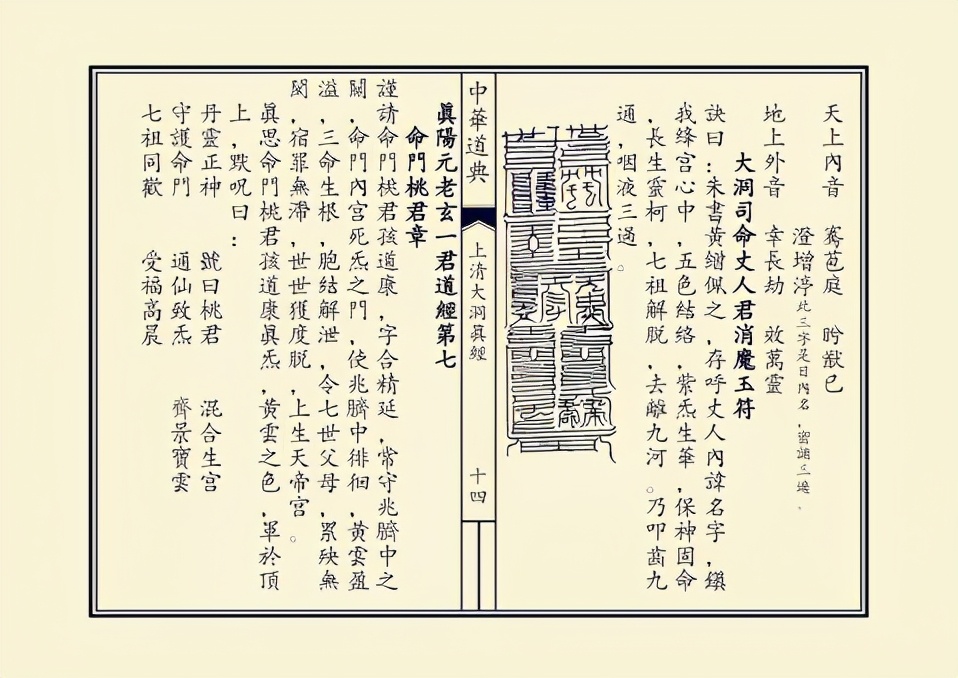 天上內音　鸞芭庭　盻猷已
澄增渟此三字是日內名，密誦三遍。
地上外音　幸長劫　效萬靈
大洞司命丈人君消魔玉符
訣曰：朱書黃繒佩之，存呼丈人內諱名字，鎮
我絳宮心中，五色結絡，紫炁生華，保神固命
，長生靈柯，七祖解脫，去離九河。乃叩齒九
通，咽液三過。
中華道典
上清大洞真經
十四
眞陽元老玄一君道經第七
命門桃君章
謹請命門桃君孩道康，字合精延，常守兆臍中之
關，命門內宮死炁之門，使兆臍中徘徊，黃雲盈
溢，三命生根，胞結解泄，令七世父母，累殃無
閡，宿罪無滯，世世獲度脫，上生天帝宮。
眞思命門桃君孩道康眞炁，黃雲之色，罩於頂
上，默呪曰：
丹靈正神　號曰桃君　混合生宮
守護命門　通仙致炁　齊景寶雲
七祖同歡　受福高晨